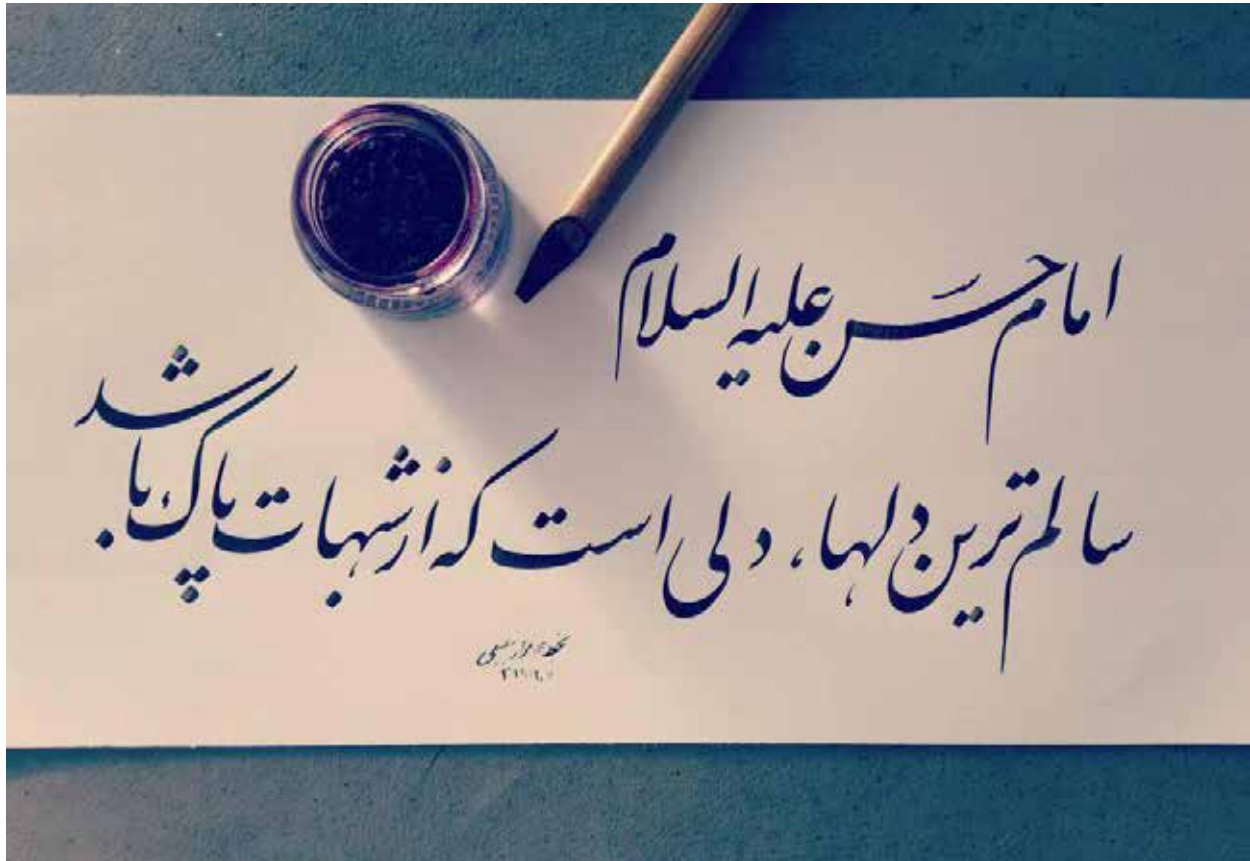 امام حسَن علیه السلام
سالم ترین دلها، دلی است که از شبهات پاک باشد